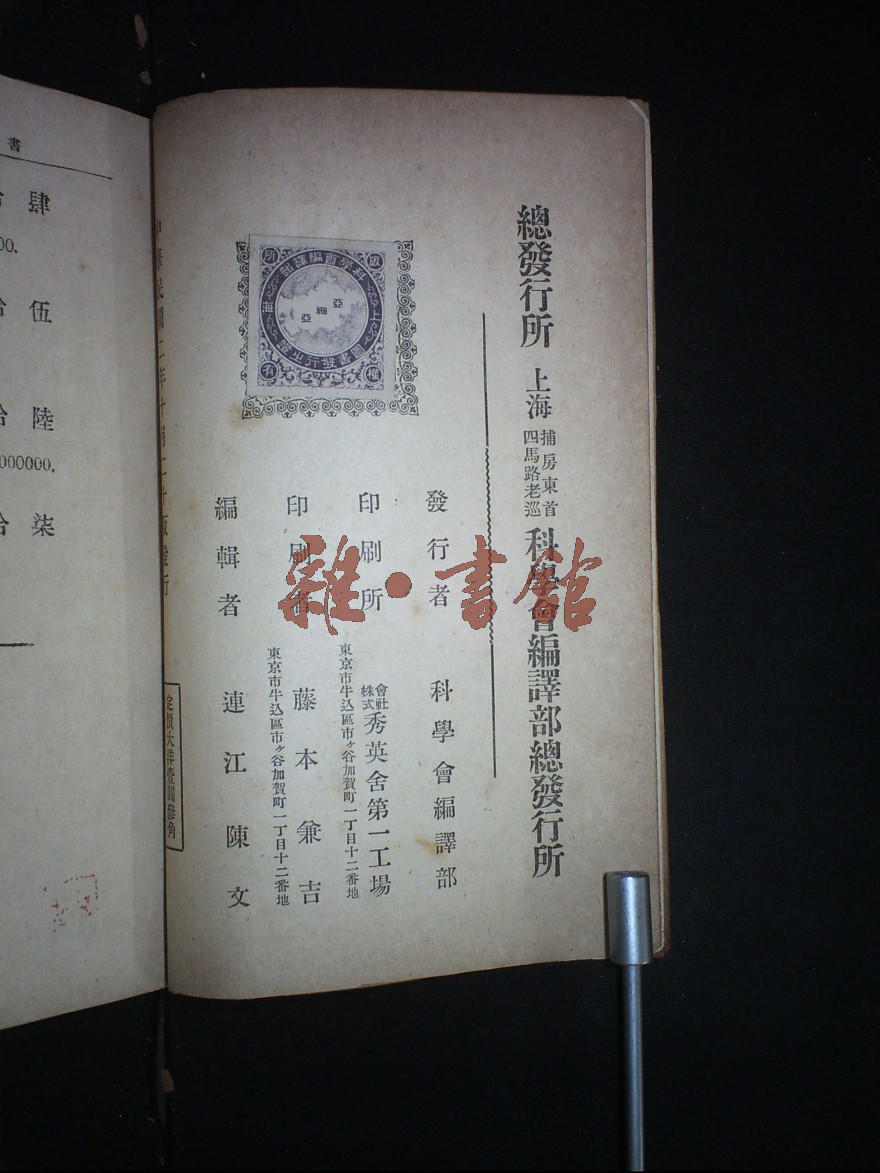 總發行所 上海 四馬路老巡捕房東首 科學會編譯部總發行所
發行者 科學會編譯部
印刷所 株式會社 秀英舍第一工場
東京市牛込區市ヶ谷加賀町一丁目十二番地
印刷者 藤本兼吉
東京市牛込區市ヶ谷加賀町一丁目十二番地
編輯者 連江陳文
版權所有
上海科學會編譯部圖書發行之證
亞細亞
定價大洋壹圓參角
雜·書館
書
肆
伍
陸
000000.
柒